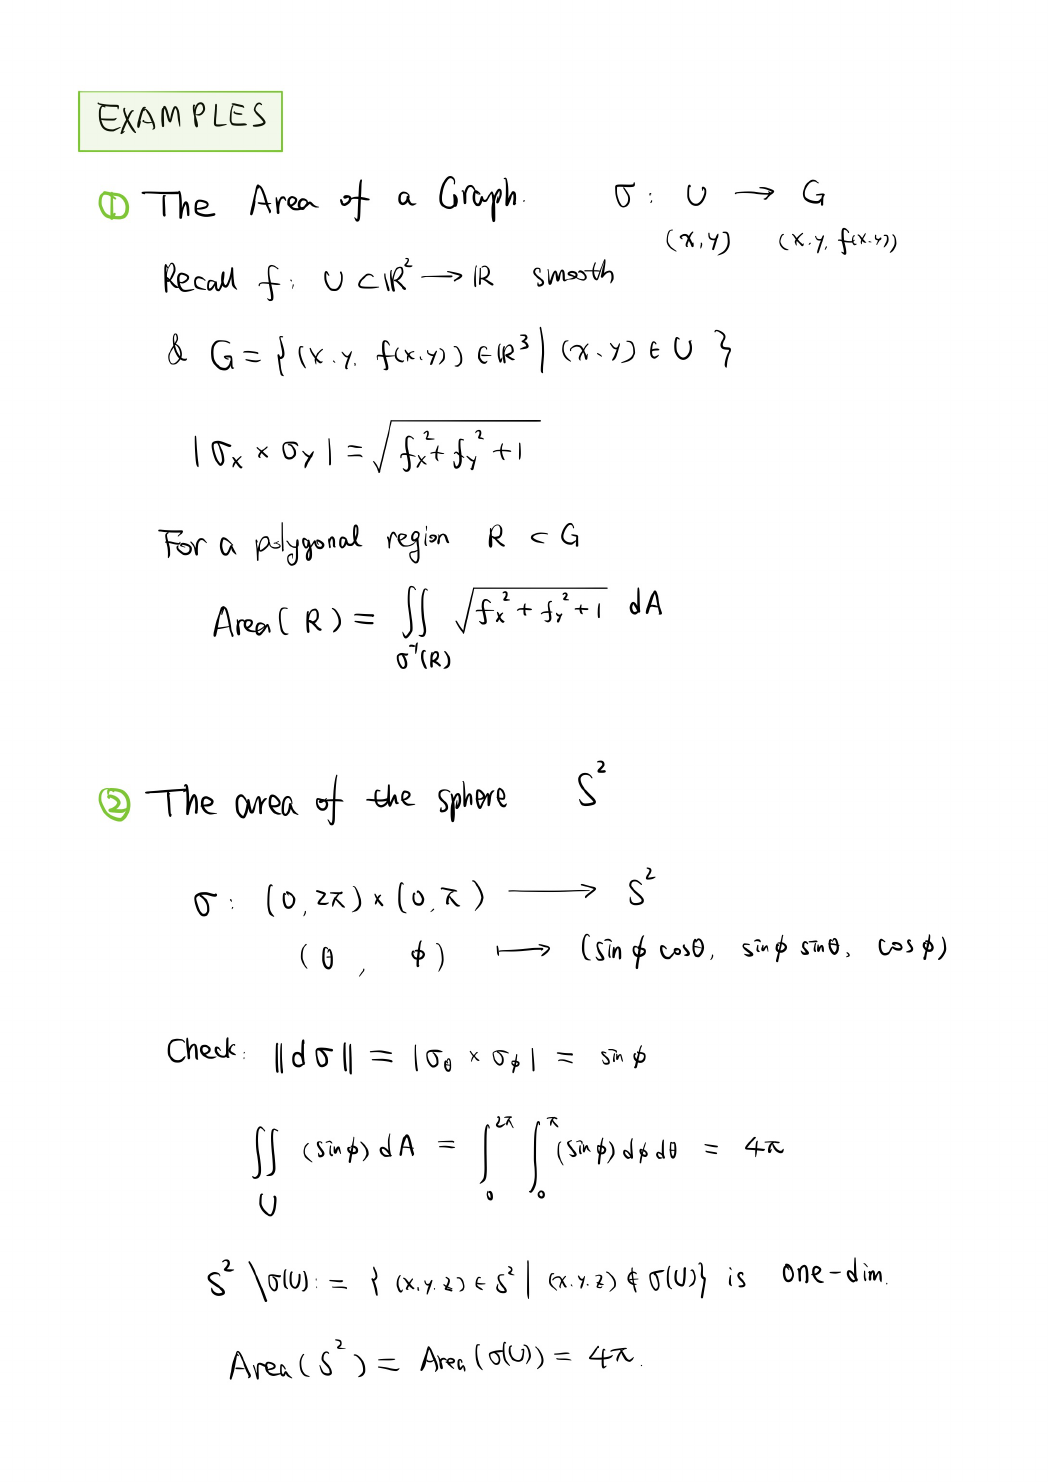 EXAMPLES
① The Area of a Graph. σ : U → G
(x,y) (x.y. f(x.y))
Recall f : U ⊂ ℝ² → ℝ smooth
& G = { (x.y. f(x.y)) ∈ ℝ³ | (x.y) ∈ U }
|σx × σy| = √(fx² + fy² + 1)
For a polygonal region R ⊂ G
Area( R ) = ∬ √(fx² + fy² + 1) dA
σ⁻¹(R)
② The area of the sphere S²
σ : (0, 2π) × (0, π) ⟶ S²
( θ , ϕ ) ⟼ (sin ϕ cosθ, sinϕ sinθ, cos ϕ)
Check : ‖dσ‖ = |σθ × σϕ| = sin ϕ
∬U (sin ϕ) dA = ∫₀^2π ∫₀^π (sin ϕ) dϕ dθ = 4π
S² \ σ(U) := { (x.y.z) ∈ S² | (x.y.z) ∉ σ(U)} is one-dim.
Area( S² ) = Area (σ(U)) = 4π.